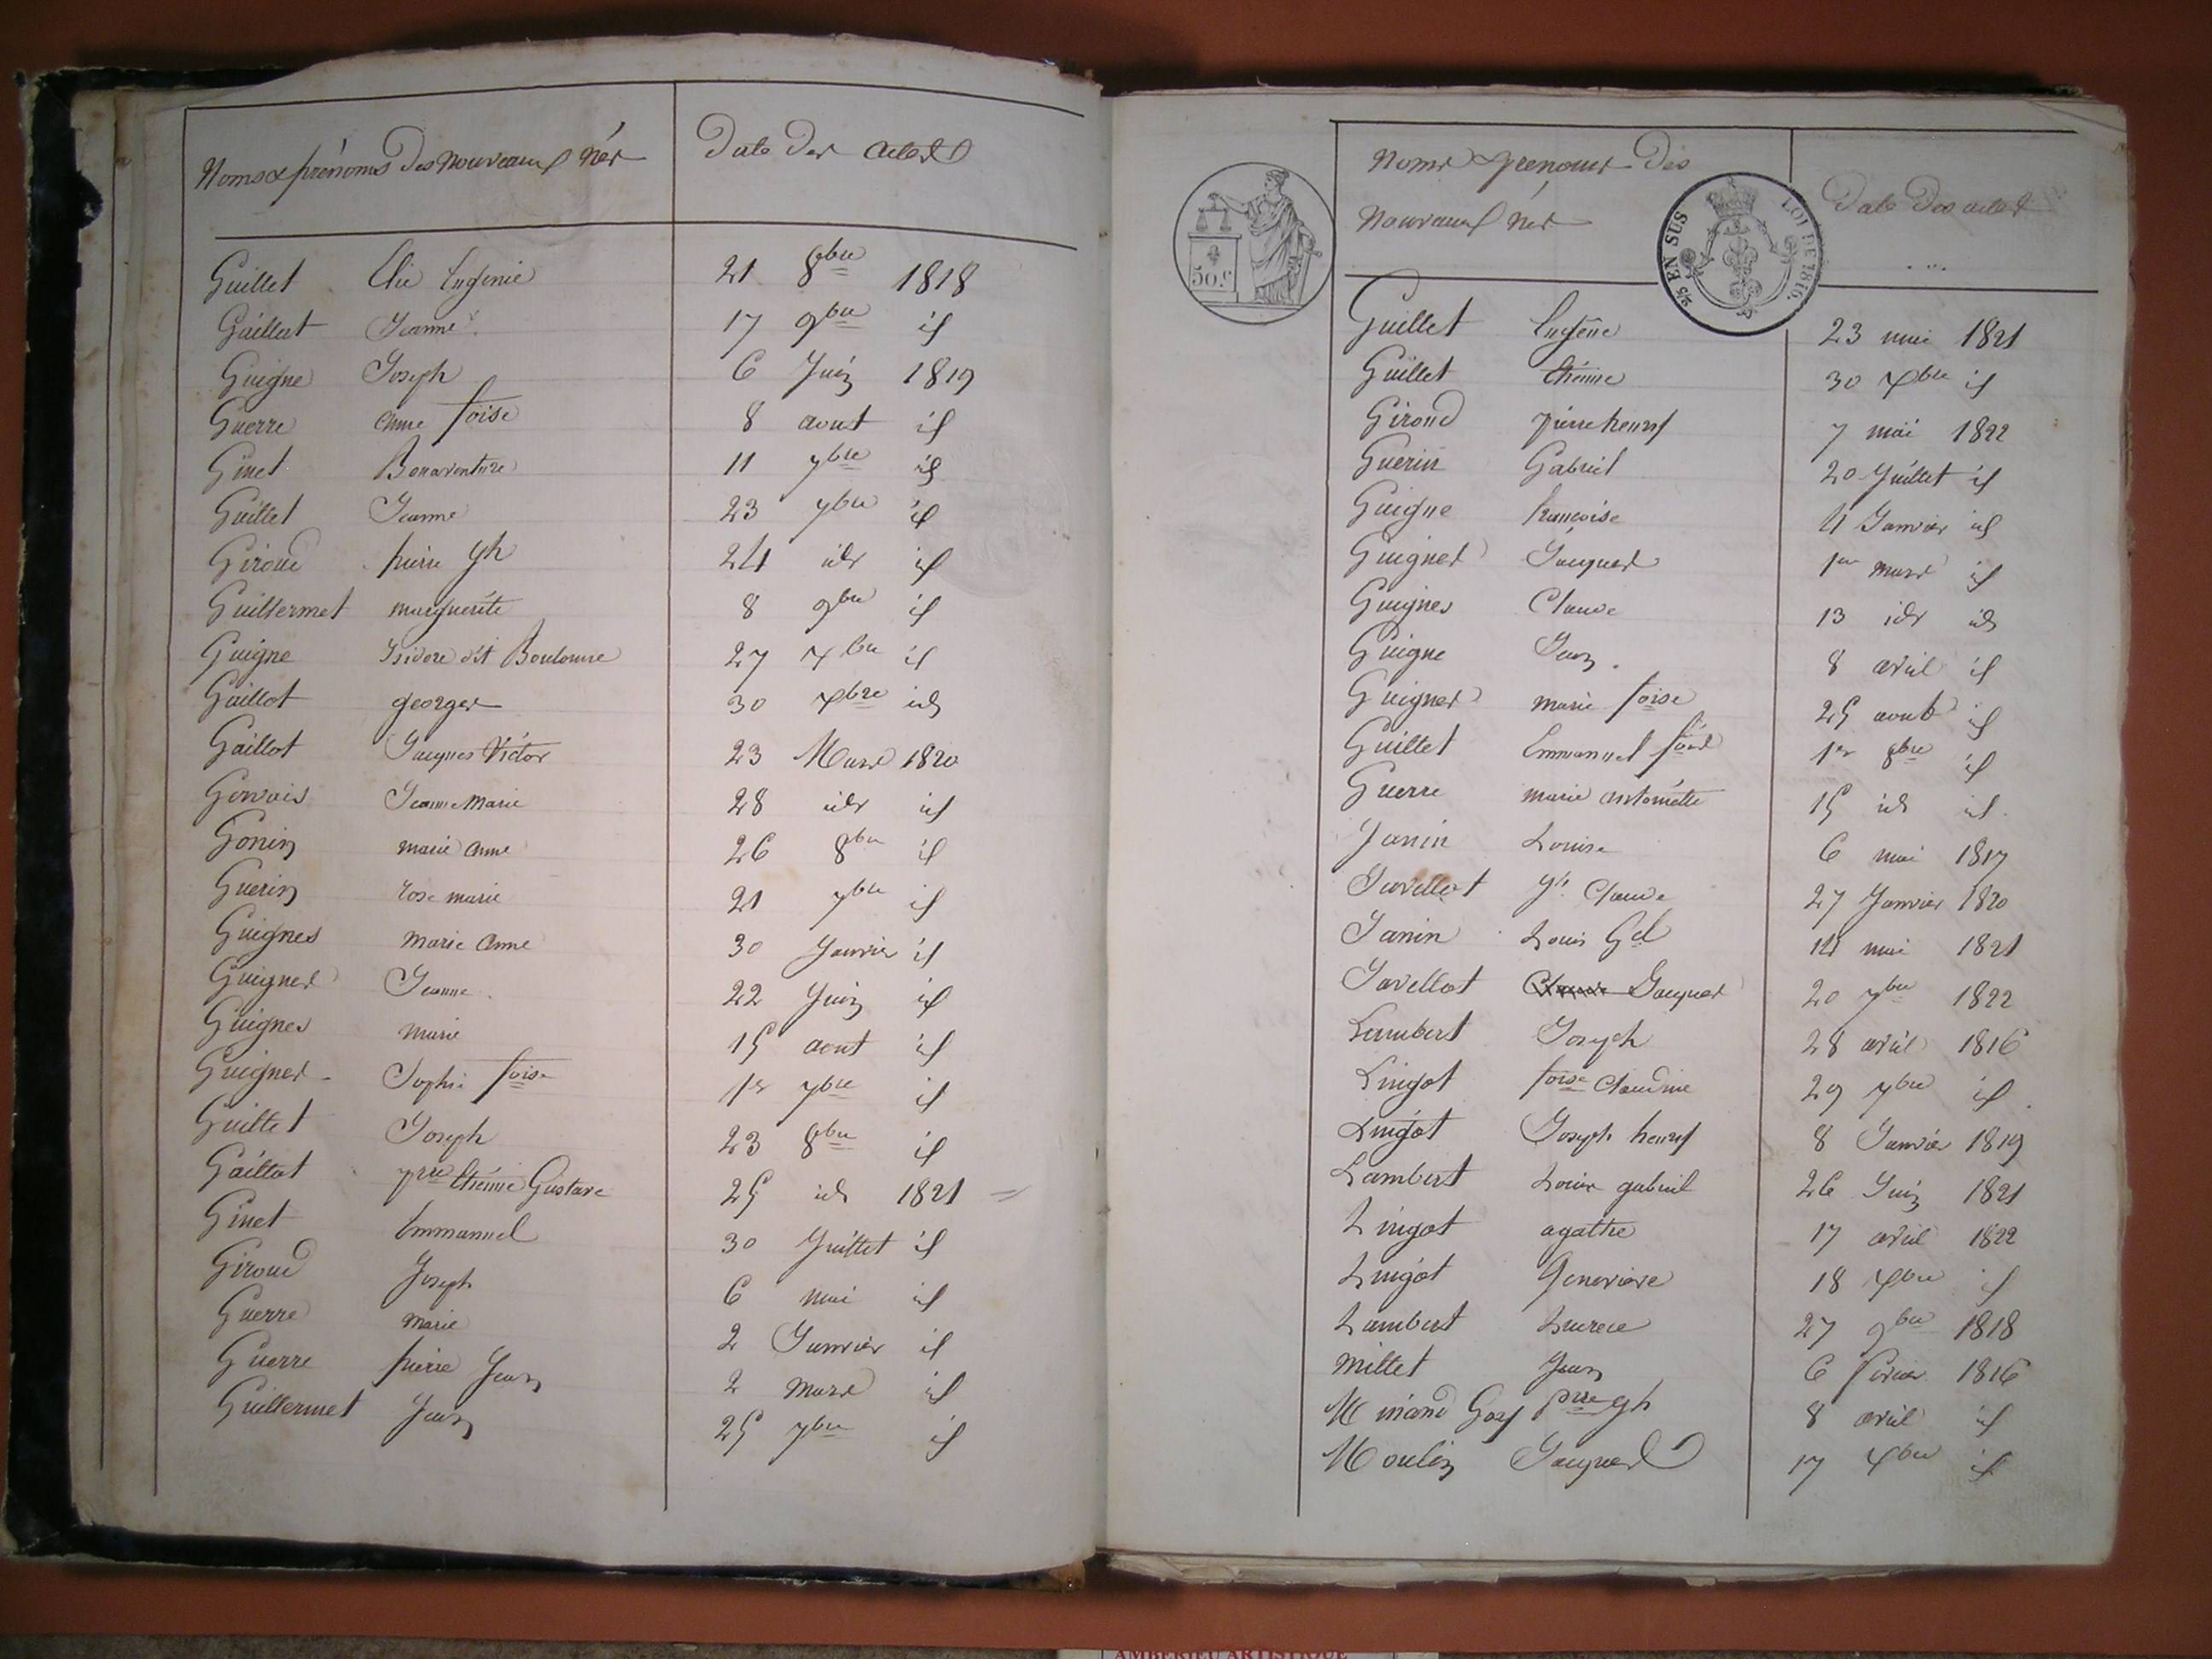 Noms & prénoms des nouveaux nés Date des actes
Guillet Elie Eugenie 21 8bre 1818
Guillat Jeanne 17 9bre id
Guigne Joseph 6 Juin 1819
Guerre anne foise 8 aout id
Ginet Bonaventure 11 7bre id
Guillet Jeanne 23 7bre id
Giroud pierre Jh 24 ids id
Guillermet marguerite 8 9bre id
Guigne Isidore dit Boulonne 27 Xbre id
Gaillot georges 30 Xbre id
Gaillot Jacques Victor 23 Mars 1820
Gervais Jeanne Marie 28 ids id
Gonin marie anne 26 8bre id
Guerin rose marie 21 7bre id
Guignes Marie anne 30 Janvier id
Guignes Jeanne 22 Juin id
Guignes Marie 15 aout id
Guignes Sophie foise 1er 7bre id
Guillet Joseph 23 8bre id
Gaillot prre Etienne Gustave 25 id 1821
Ginet Emmanuel 30 Juillet id
Giroud Joseph 6 mai id
Guerre Marie 2 Janvier id
Guerre pierre Jean 2 mars id
Guillermet Jean 25 7bre id
50 c.
2/5 EN SUS
LOI DE 1816.
Noms & prenoms des
Nouveaux nés Date des actes
Guillet Eugène 23 mai 1821
Guillet Etienne 30 Xbre id
Giroud pierre henry 7 mai 1822
Guerin Gabriel 20 Juillet id
Guigne francoise 11 Janvier id
Guignes Jacques 1er mars id
Guignes Claude 13 ids id
Guigne Jean 8 avril id
Guignes marie foise 25 aout id
Guillet Emmanuel fois 1er 8bre id
Guerre marie antoinette 15 id id
Janin Louise 6 mai 1817
Javellot Jh Claude 27 Janvier 1820
Janin Louis Gel 14 mai 1821
Javellot Jacques 20 7bre 1822
Lambert Joseph 28 avril 1816
Lingot foise Claudine 29 7bre id
Lingot Joseph henry 8 Janvier 1819
Lambert Louis gabriel 26 Juin 1821
Lingot agathe 17 avril 1822
Lingot Genevieve 18 Xbre id
Lambert Lucrece 27 9bre 1818
Millet Jean 6 fevrier 1816
Minand Goy prre Jh 8 avril id
Moulin Jacques 17 Xbre id
AMBERIEU ARTISTIQUE